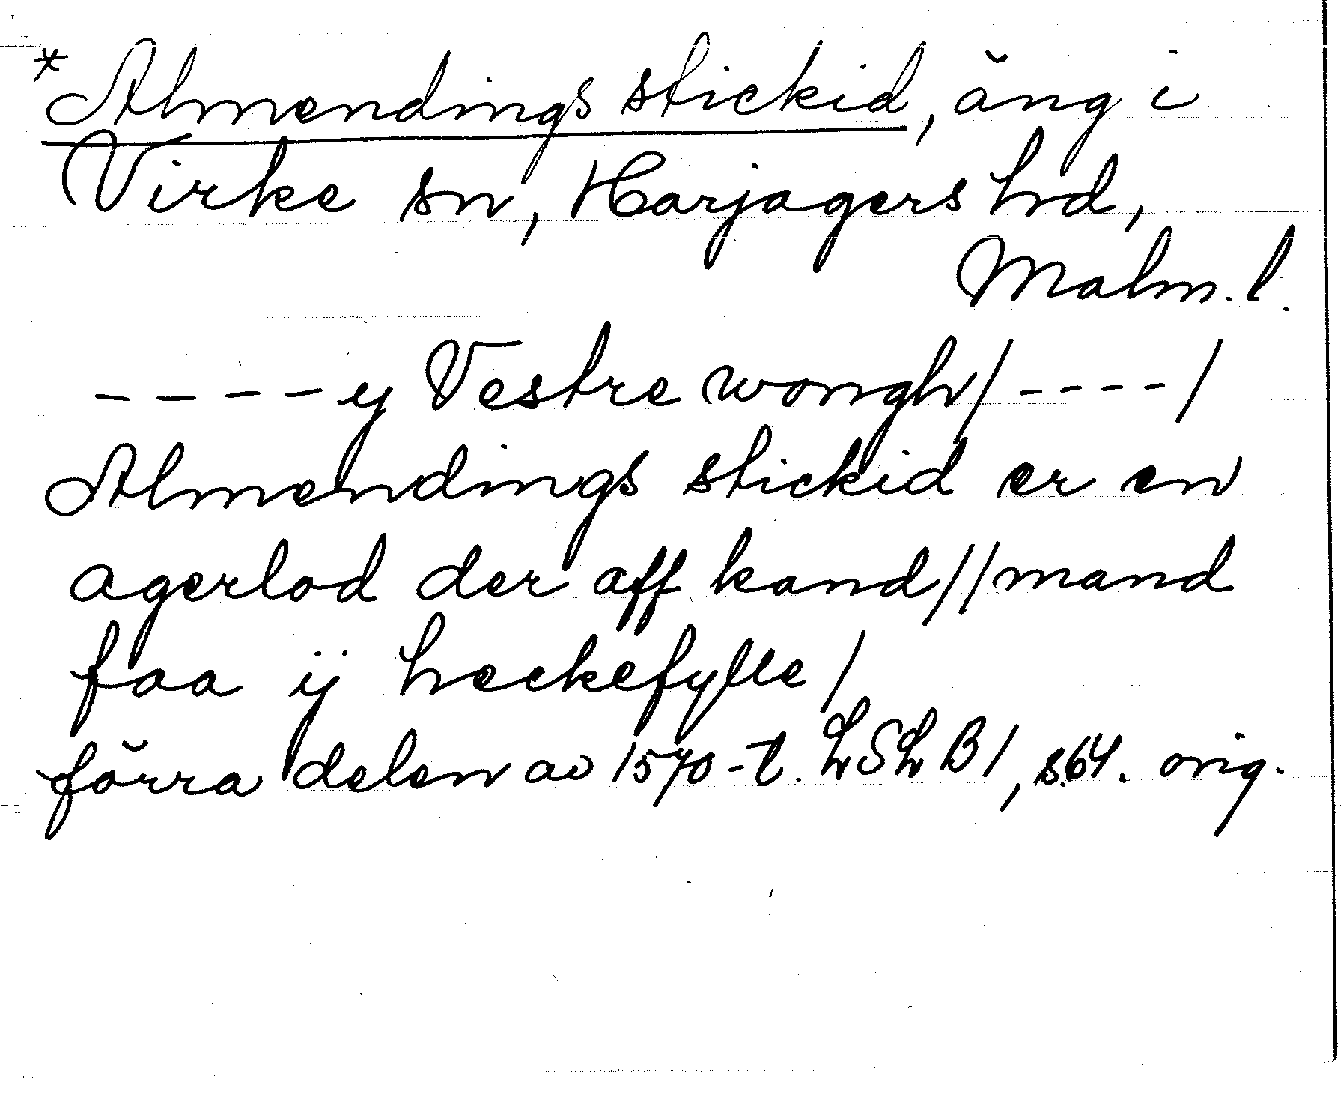 *Almendings stickid, äng i
Virke sn, Harjagers hrd,
Malm. l.
- - - - y Vestre wongh/ - - - - /
Almendings stickid er en
agerlod der aff kand//mand
faa ij heckefylle/
förra delen av 1570-t. LSLB1, s.64. orig.